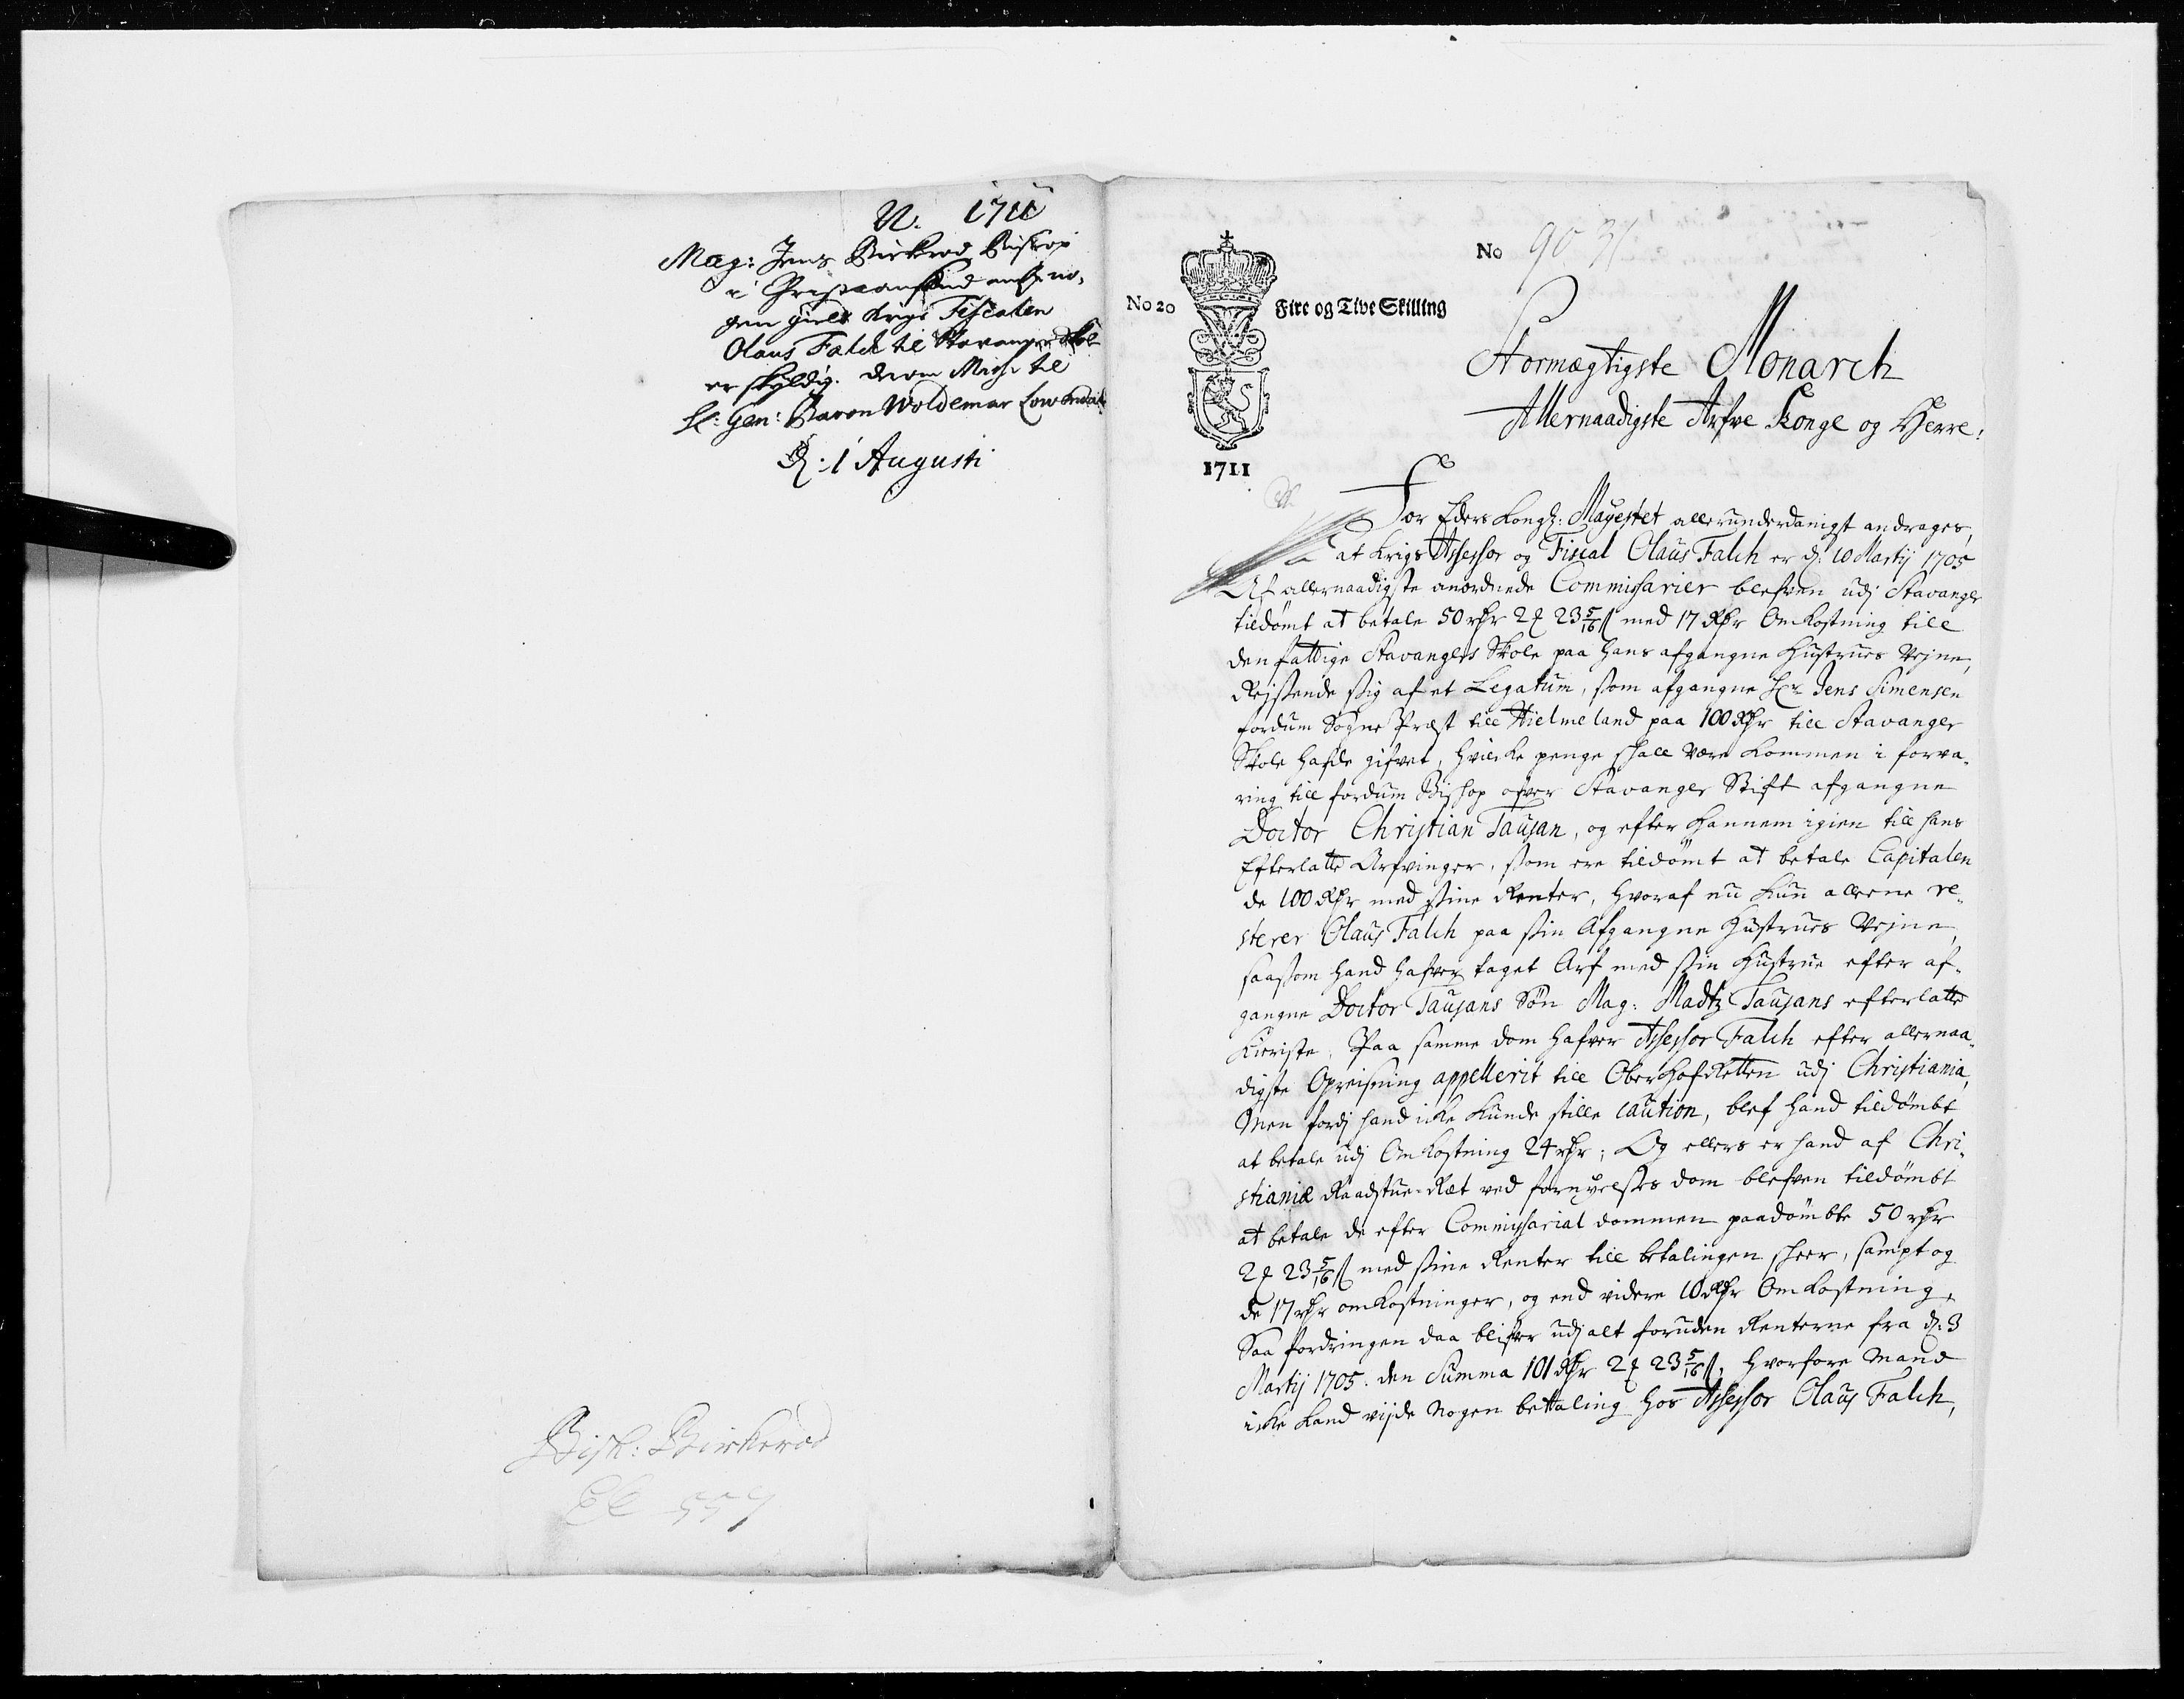 N. 1711
Mag: Jens Birkerod Biskop
i Christiansand anl: no,
gen gield Krigs Fiscalen
Olaus Falck til Stavanger Skole
er skyldig. derom Miss: til
H: Gen: Baron Woldemar Lowendal
D: 1 Augusti
Bisp: Birkerod
557
No 9031
No 20
Fire og Tive Skilling
1711
Stormægtigste Monarch
Allernaadigste Arfve Konge og Herre:
For Eders Kongl: Mayestet allerunderdanigst andrages,
at Krigs Assessor og Fiscal Olaus Falch er d: 10 Martij 1705
Af allernaadigste anordnede Commissarier blefven udj Stavanger
tildømt at betale 50 rdr 2 ꝣ 23 5/16 ß med 17 Rdr Omkostning till
den fattige Stavangers Skole paa hans afgangne Hustrues Vejne,
Rejsende sig af et Legatum, som afgangne Hr Jens Simensen
fordum Sogne Præst till Hielmeland paa 100 Rdr till Stavanger
Skole hafde gifvet, hvilcke penge shall være kommen i forva,
ring till fordum Bishop ofver Stavanger Stift afgangne
Doctor Christian Tausan, og efter hannem igien till hans
Efterlatte Arfvinger, som ere tildømt at betale Capitalen
de 100 Rdr med sine Renter, hvoraf nu kun alleene re,
sterer Olaus Falch paa sin Afgangne Hustrues Vejne,
saasom hand hafver taget Arf med sin Hustrue efter af,
gangne Doctor Tausans Søn Mag: Madtz Tausans efterlatte
Kieriste, Paa samme dom hafver Assessor Falch efter allernaa,
digste Opreisning appellerit till OberHofRetten udj Christiania,
Men fordj hand icke kunde stille caution, blef hand tildømbt
at betale udj Omkostning 24 rdr; Og ellers er hand af Chri,
stianiæ Raadstue-Ræt ved fornyelses dom blefven tildømbt
at betale de efter Commissarial dommen paadømbte 50 rdr
2 ꝣ 23 5/16 ß med sine Renter till betalingen sheer, sampt og
de 17 rdr omkostninger, og end videre 10 Rdr Omkostning,
Saa fordringen daa blifver udj alt foruden Renterne fra d: 3
Martij 1705. den Summa 101 Rdr 2 ꝣ 23 5/16 ß; hvorfore Mand
icke kand vijde nogen bettaling hos Assessor Olaus Falch,